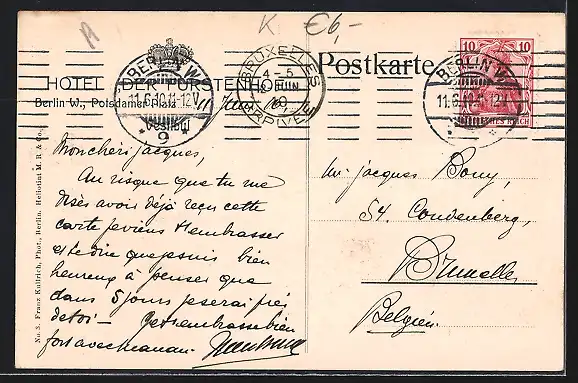 K €6,-
BRUXELLES
4-5
JUIN
10
ARRIVEE
BERLIN W.
11.6.10.11-12V
9
Postkarte
10 10
BERLIN W.
11.6.10
DEUTSCHES REICH
HOTEL DER FÜRSTENHOF
Berlin W., Potsdamer Platz
Vestibül
Mon cher Jacques,
Au risque que tu me
dises avoir déjà reçu cette
carte je viens t'embrasser
et te dire que je suis bien
heureux à penser que
dans 5 jours je serai près
de toi — Je t'embrasse bien
fort avec maman.
Mr. Jacques Bouy,
54. Coudenberg,
Bruxelles
Belgien.
No. 3. Franz Kullrich, Phot., Berlin. Heliotint M. R. & Co.